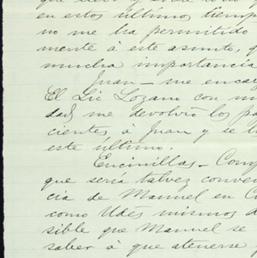 en estos últimos tiempo
no me ha permitido
mente á este asunto, q
mucha importancia
Juan — me encar
El Lic Lozano con mu
dad, me devolvió los pa
cientes á Juan y se l
este último.
Encinillas — Conv
que sería talvez conven
cia de Manuel en C
como Udes mismos d
sible que Manuel se
saber á que atenerse